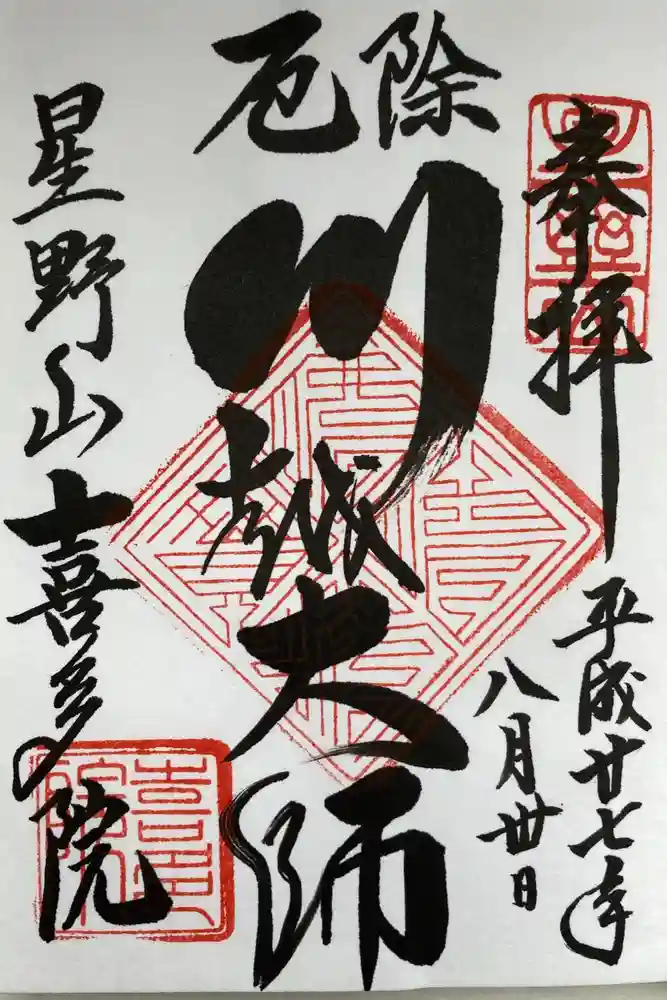 奉拝
平成廿七年
八月卅日
厄除
川越大師
星野山喜多院
喜多院